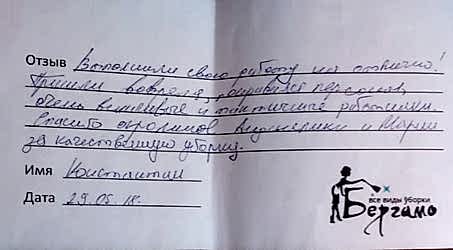 Отзыв Выполнили свою работу на отлично!
Пришли вовремя, понравился персонал,
очень вежливые и тактичные работники.
Спасибо огромное и Марии
за качественную уборку.
Имя Константин
Дата 29.05.18.
все виды уборки
Бергамо